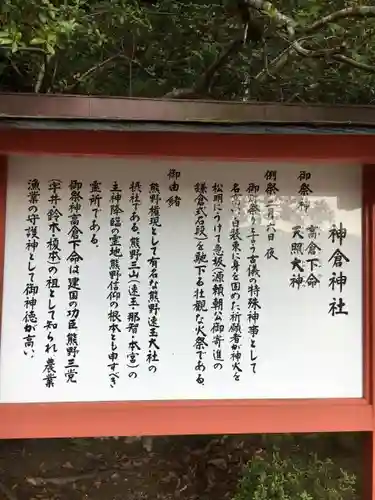 神倉神社
御祭神 高倉下命
天照大神
例祭 二月六日夜
御燈祭りとその古儀の特殊神事として
名高い白装束に身を固めた祈願者が神火を
松明にうけて急坂(源頼朝公御寄進の
鎌倉式石段)を馳下る壮観な火祭である。
御由緒
熊野権現として有名な熊野速玉大社の
摂社である。熊野三山(速玉・那智・本宮)の
主神降臨の霊地熊野信仰の根本とも申すべき
霊所である。
御祭神高倉下命は建国の功臣熊野三党
(宇井鈴木榎本)の祖として知られ農業
漁業の守護神として御神徳が高い。